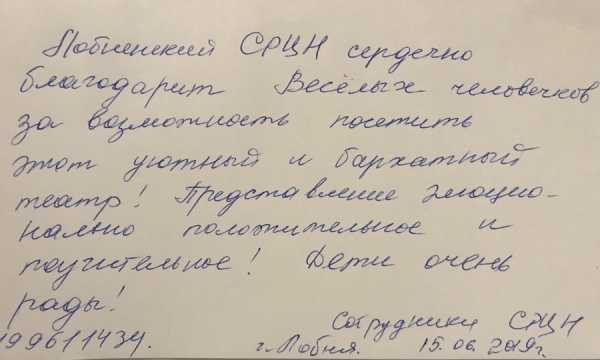 Лобненский СРЦН сердечно
благодарит Весёлых человечков
за возможность посетить
этот уютный и бархатный
театр! Представление эмоцио-
нально положительное и
поучительное! Дети очень
рады!
Сотрудники СРЦН
г. Лобня. 15.06.2019г.
199611434.